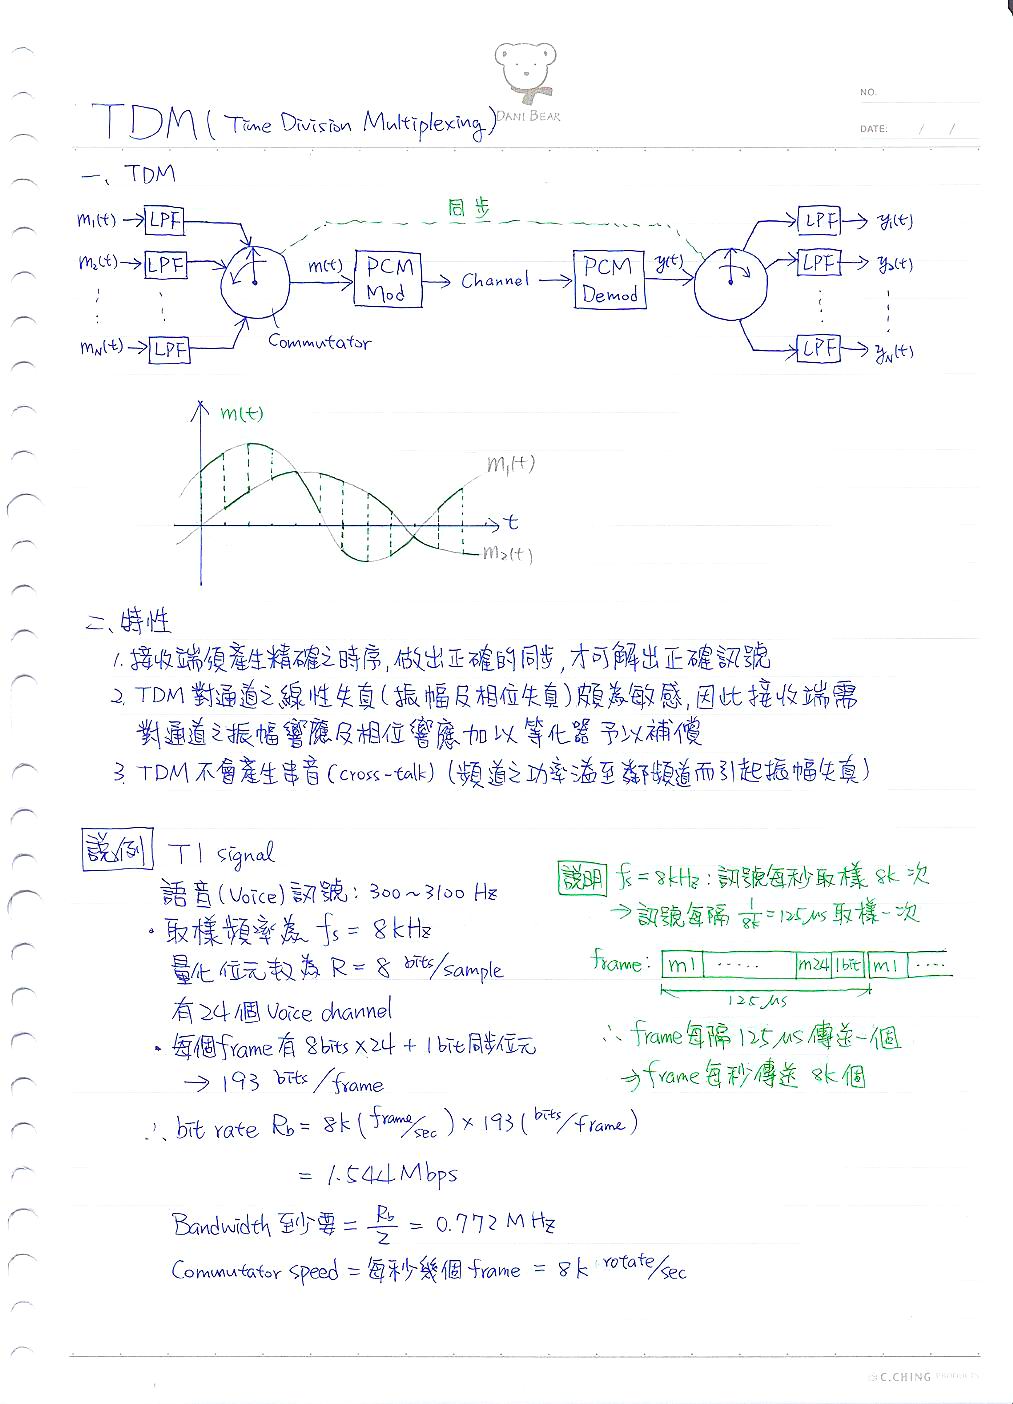 DANI BEAR
NO.
DATE: / /
TDM (Time Division Multiplexing)
一、TDM
同步
m₁(t) LPF
m₂(t) LPF
m_N(t) LPF
Commutator
m(t)
PCM Mod
Channel
PCM Demod
y(t)
LPF y₁(t)
LPF y₂(t)
LPF y_N(t)
m(t)
m₁(t)
t
m₂(t)
二、特性
1. 接收端須產生精確之時序,做出正確的同步,才可解出正確訊號
2. TDM 對通道之線性失真(振幅及相位失真)頗為敏感,因此接收端需
對通道之振幅響應及相位響應加以等化器予以補償
3. TDM 不會產生串音(cross-talk) (頻道之功率溢至鄰頻道而引起振幅失真)
說例 T1 signal
語音(Voice)訊號: 300~3100 Hz
• 取樣頻率為 fs = 8kHz
量化位元數為 R = 8 bits/sample
有24個 Voice channel
• 每個frame有 8bits×24 + 1bit同步位元
→ 193 bits/frame
∴ bit rate Rb = 8k (frame/sec) × 193 (bits/frame)
= 1.544 Mbps
Bandwidth 至少要 = Rb/2 = 0.772 MHz
Commutator speed = 每秒幾個 frame = 8k rotate/sec
說明 fs = 8kHz: 訊號每秒取樣 8k 次
→ 訊號每隔 1/8k = 125μs 取樣一次
frame: m1 ····· m24 1bit m1 ····
125μs
∴ frame每隔 125μs 傳送一個
→ frame每秒傳送 8k個
C.CHING PRODUCTS